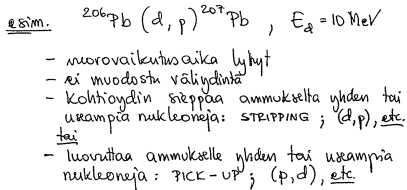 esim. ²⁰⁶Pb (d, p) ²⁰⁷Pb , E_d = 10 MeV
- vuorovaikutusaika lyhyt
- ei muodostu väliydintä
- kohtioydin sieppaa ammukselta yhden tai
useampia nukleoneja: STRIPPING ; (d,p), etc.
tai
- luovuttaa ammukselle yhden tai useampia
nukleoneja : PICK-UP ; (p,d), etc.